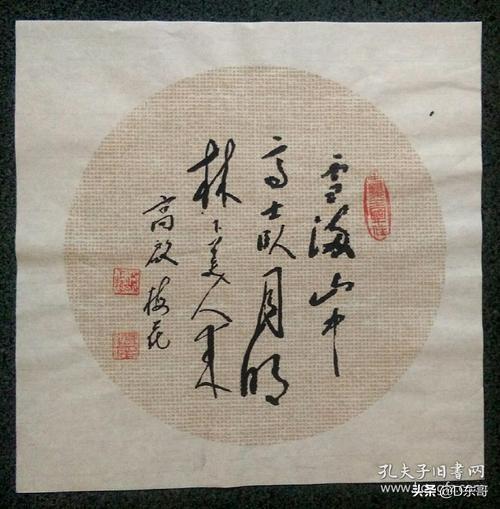 雪满山中
高士卧月明
林下美人来
高启梅花
孔夫子旧书网
头条 @D东哥